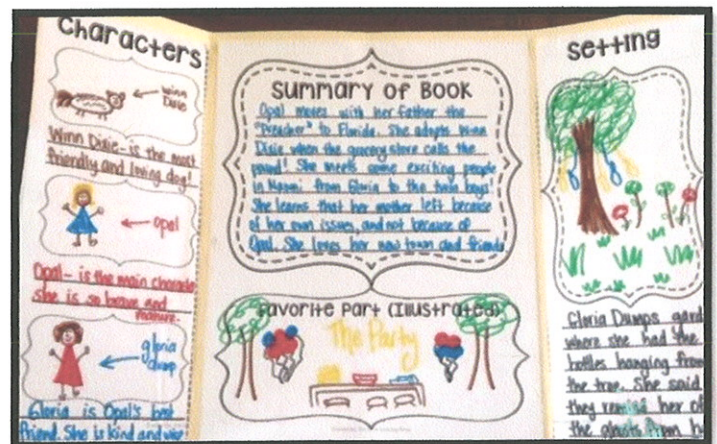 Characters
Winn
Dixie
Winn Dixie- is the most
friendly and loving dog!
opal
Opal- is the main character
she is so brave and
mature.
gloria
dump
Gloria is Opal's best
friend. She is kind and wise
Summary of Book
Opal moves with her father the
"Preacher" to Florida. She adopts Winn
Dixie when the grocery store calls the
pound! She meets some exciting people
in Naomi from Gloria to the twin boys!
She learns that her mother left because
of her own issues, and not because of
Opal. She loves her new town and friends
Favorite Part (Illustrated)
The Party
Setting
Gloria Dumps gard
where she had the
bottles hanging from
the tree. She said
they remind her of
the ghosts from h